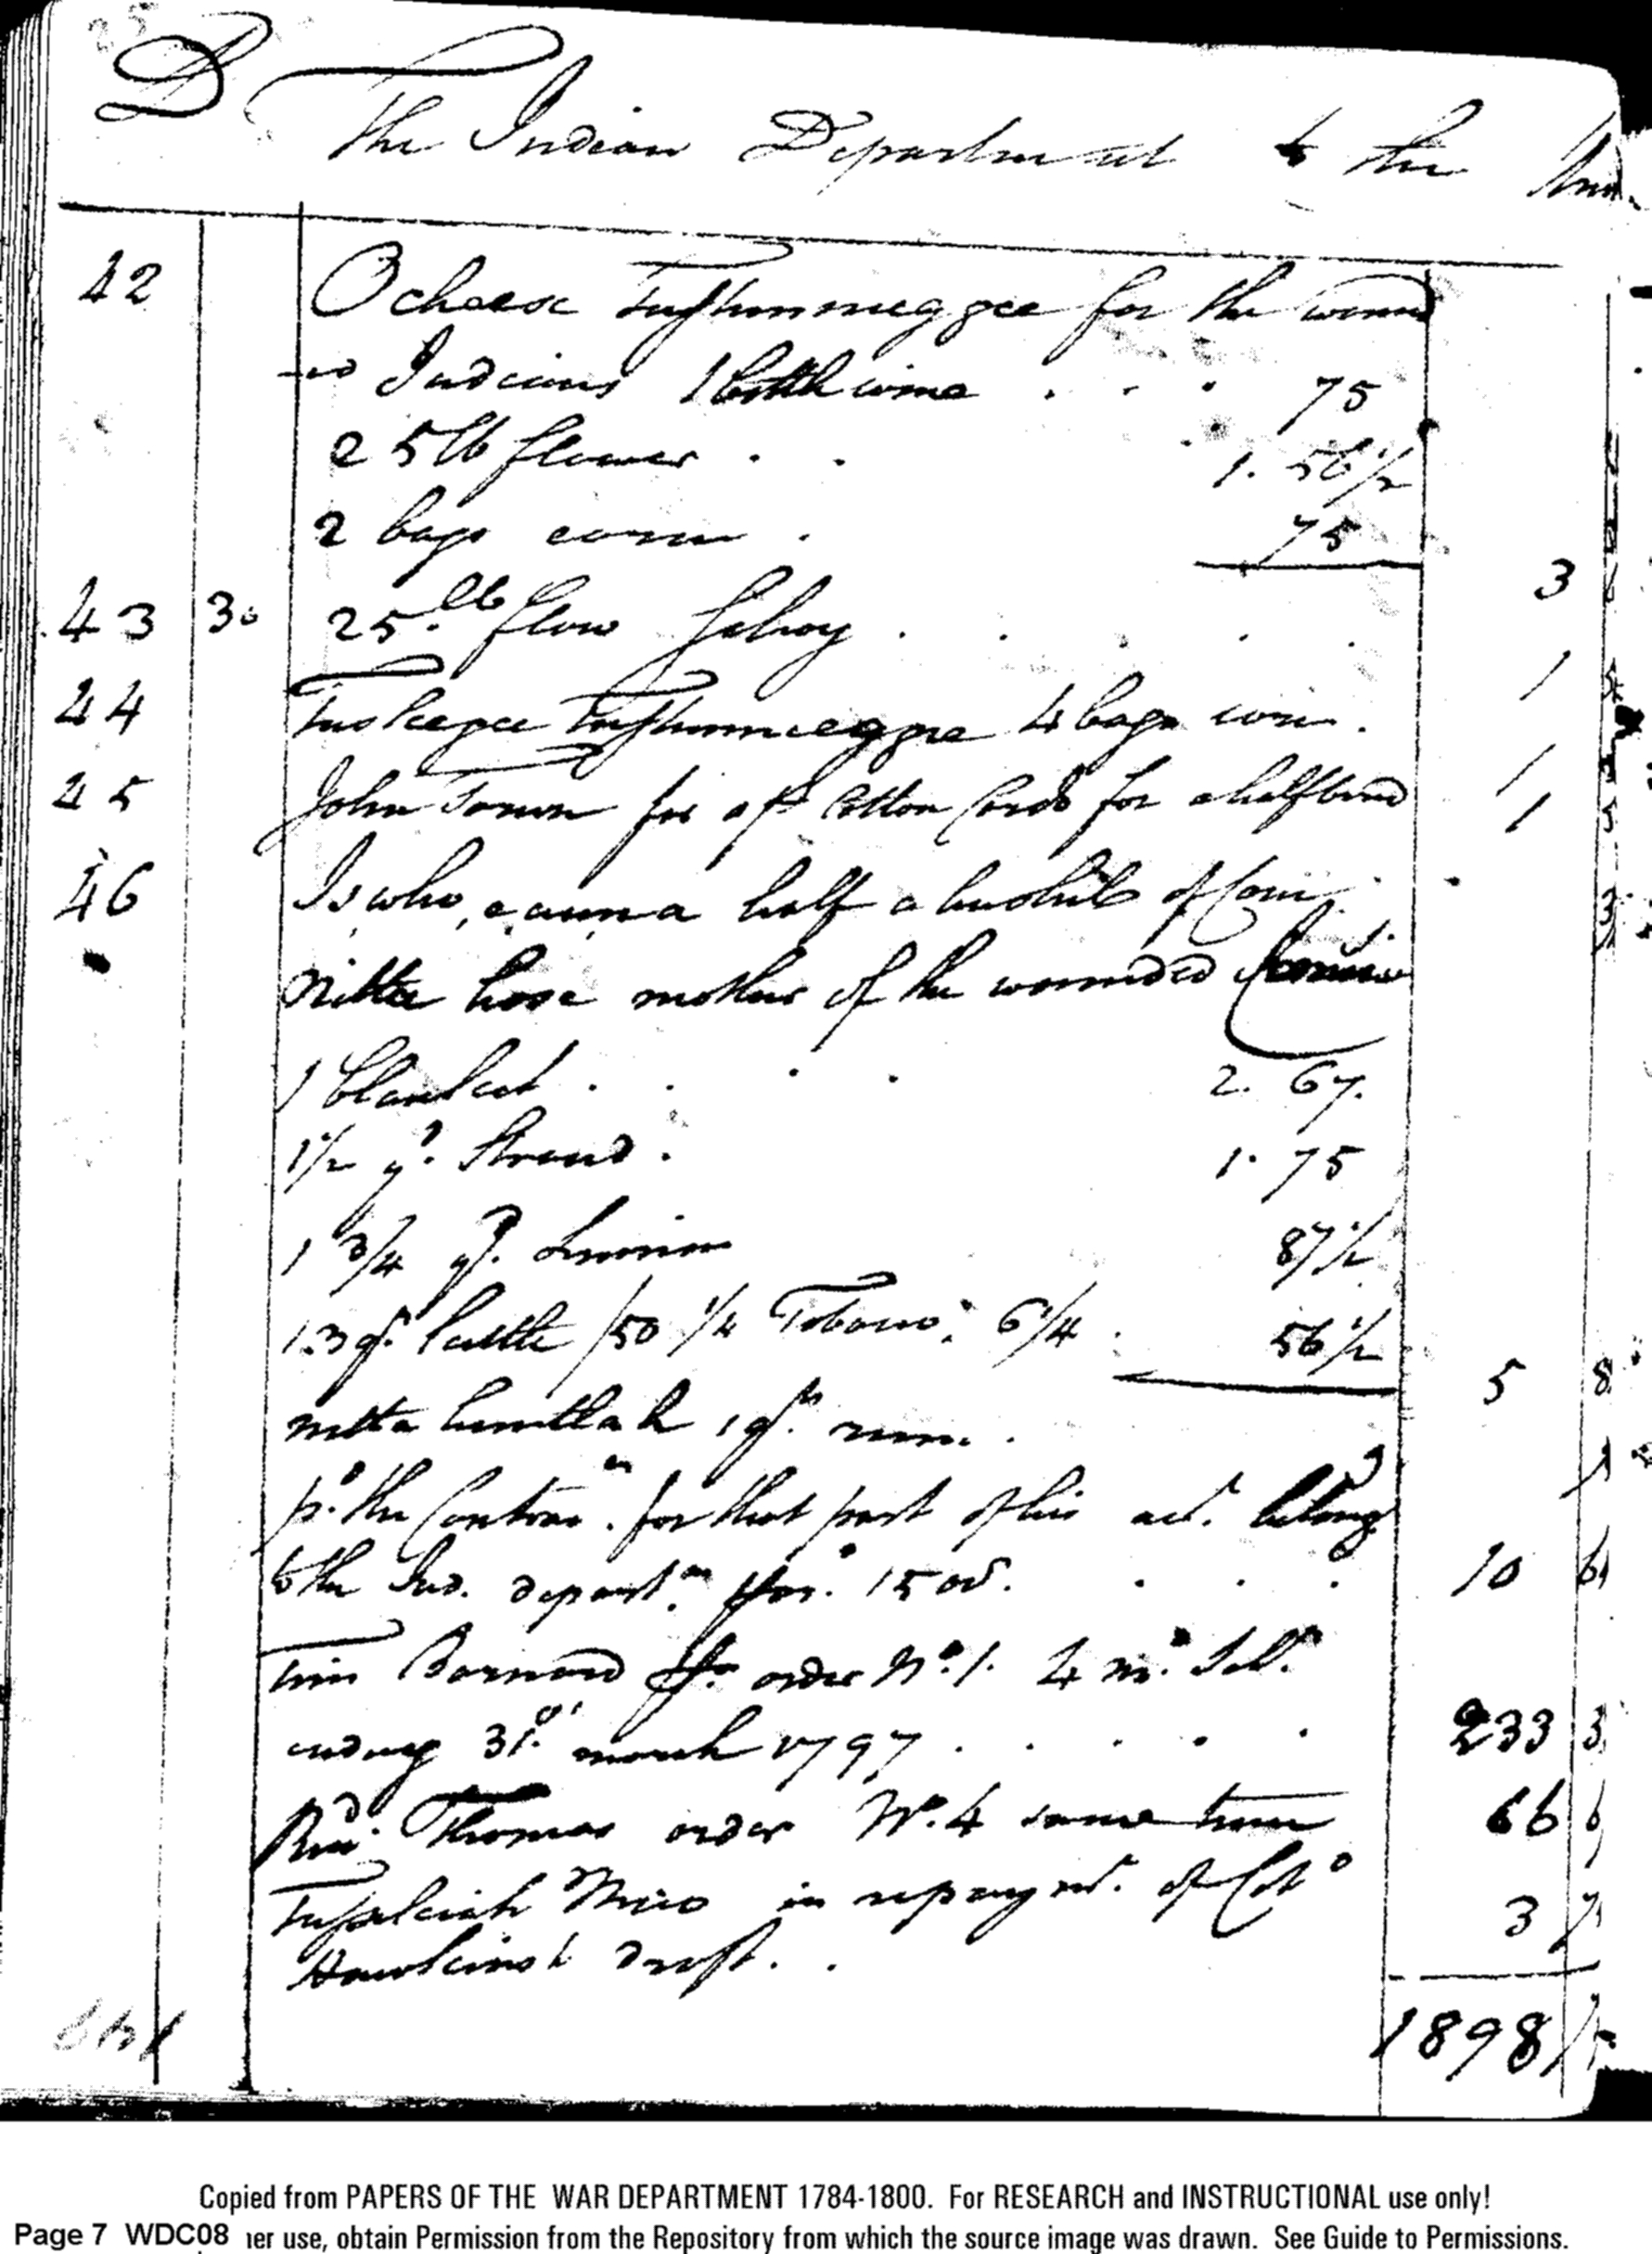 D The Indian Department to the
42 Ocheese Tustunnuggee for the wound
ed Indians 1 bottle wine . . . 75
25 lb flower . . 1. 56 1/2
2 bags corn . 75
3
43 30 25 lb flow . . . . 1
44 Tuskegee Tustunnuggee 4 bags corn . 1
45 John for a pr Cotton Cards for a halfbreed 1
46 half a bushil of Corn .
Nitta hose mother of the wounded
1 blanket . . . . 2. 67.
1 1/2 yd. Stroud . 1. 75
1 3/4 yd. 87 1/2
1.3 qt. kittle /50 1/4 Tobacco. 6/4 . 56 1/2
5 8
nitta hunttah 1 qt. rum .
pd. the Contrar. for that part of his act. belong
to the Ind. departm. 15 . . . 10 6
Tim Barnard order No. 1. 4 m.
ending 31st march 1797 . . . . . 233 3
Rid. Thomas order No. 4 same time 66 6
Mico in repaymt. of Colo 3 7
Hawkins draft . .
1898
Copied from PAPERS OF THE WAR DEPARTMENT 1784-1800. For RESEARCH and INSTRUCTIONAL use only!
Page 7 WDC08 ier use, obtain Permission from the Repository from which the source image was drawn. See Guide to Permissions.